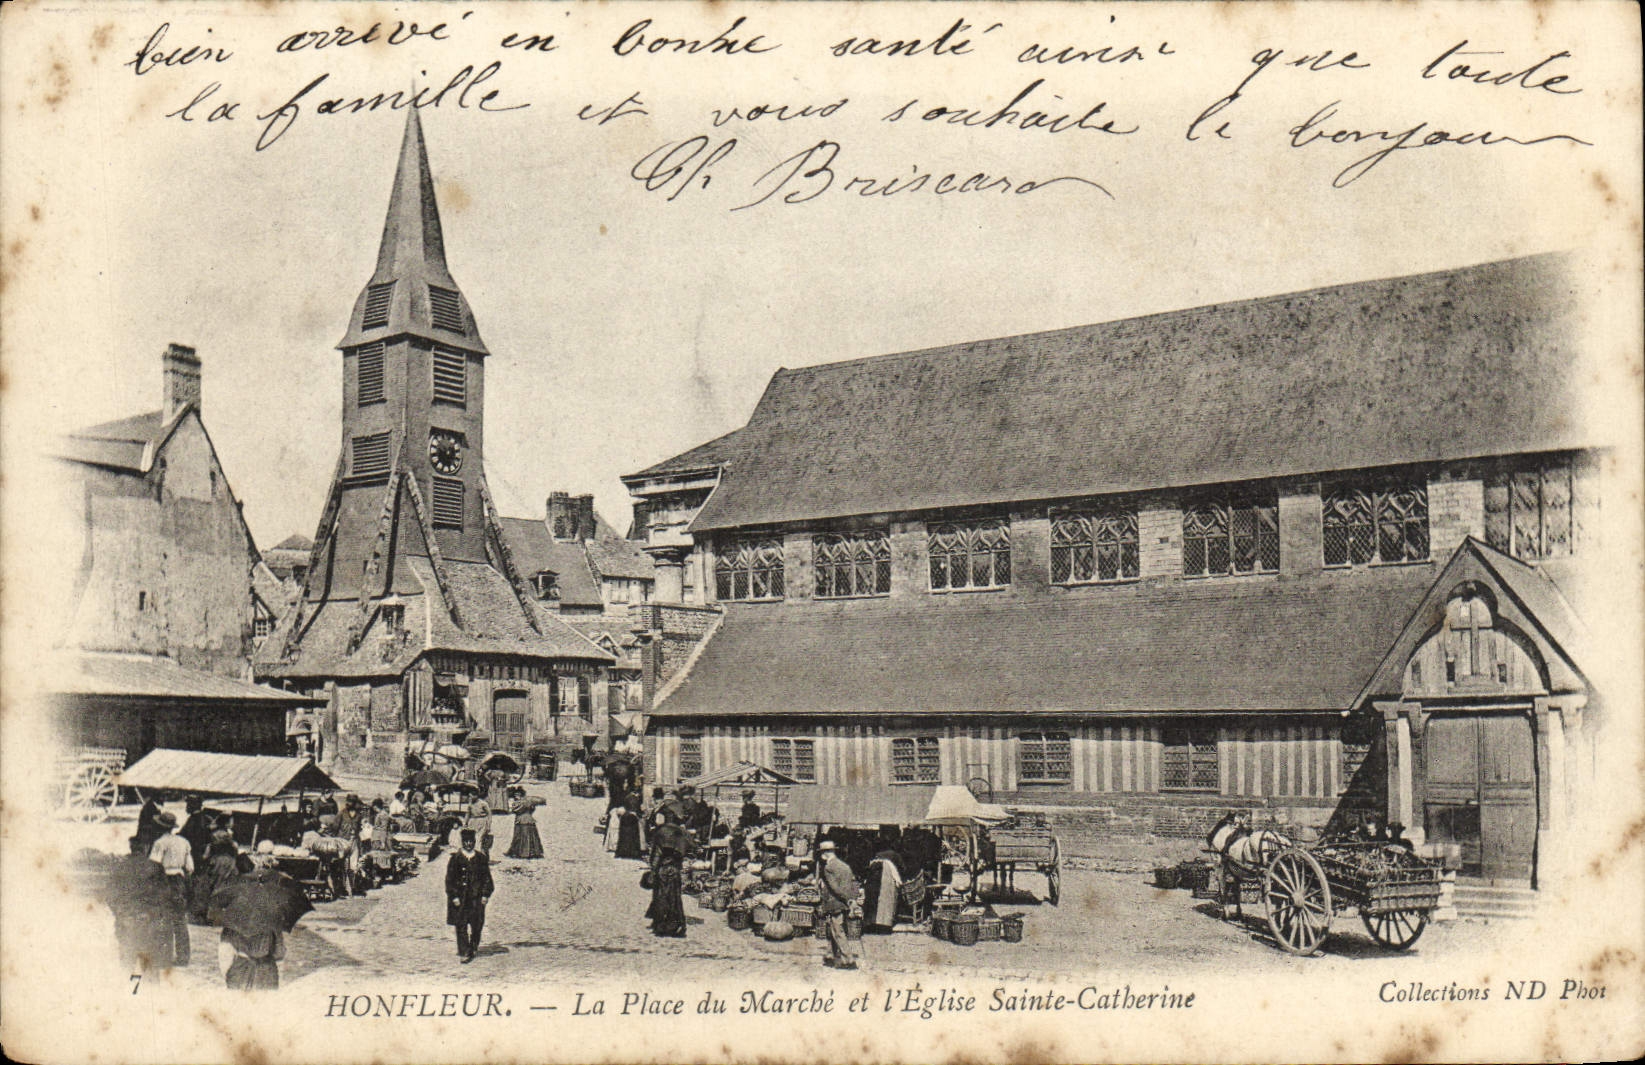 bien arrivé en bonne santé ainsi que toute
la famille et vous souhaite le bonjour
Ch Briscard
7
HONFLEUR. — La Place du Marché et l'Église Sainte-Catherine
Collections ND Phot